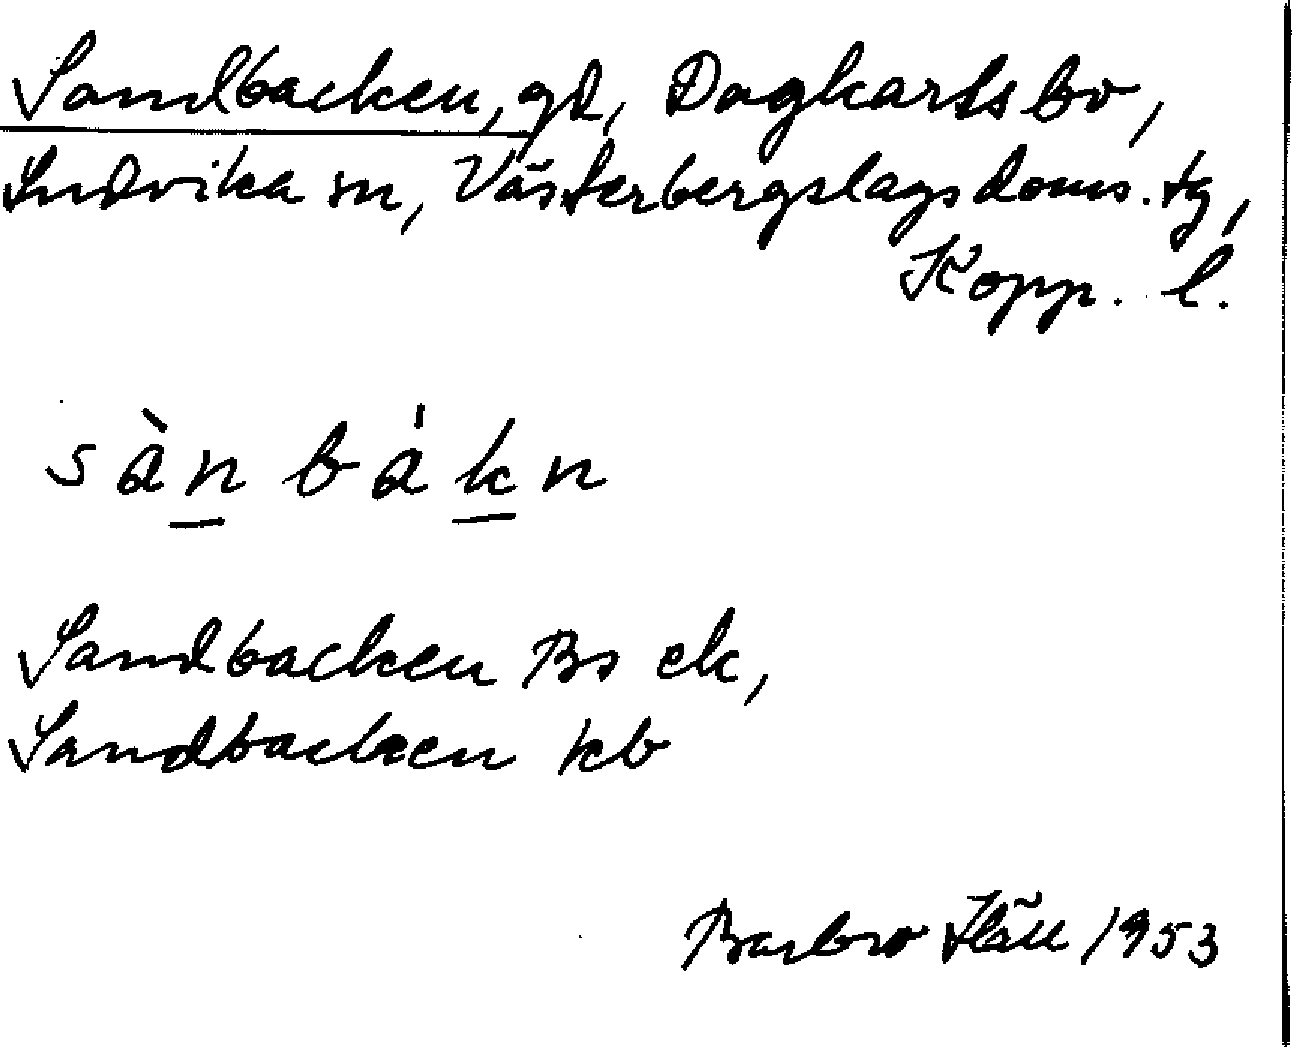 Sandbacken, gd, Dagkarlsbo,
Ludvika sn, Västerbergslags doms. tg,
Kopp. l.
sàn bákn
Sandbacken Bs ek,
Sandbacken kb
Barbro Häll 1953